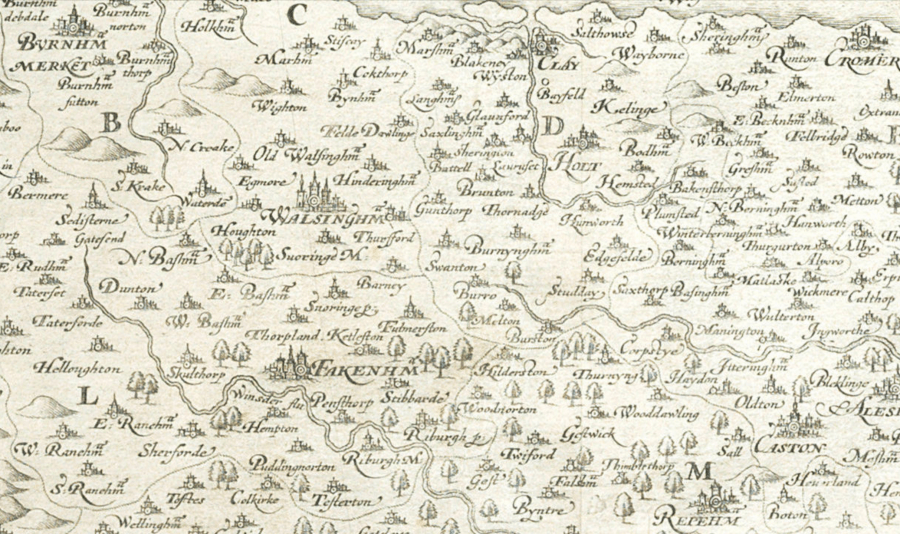 C
Burnhm
debdale
Burnhm
norton
Holkhm
Stifcey
Marshm
Salthowse
Sheringhm
BVRNHM
MERKET
Burnhm
thorp
Burnhm
sutton
Marhm
Cokthorp
Bynhm
Wighton
Blakeney
Wyston
CLAY
Wayborne
Runton
CROMER
Langhm
Bayfeld
Beston
Elmerton
Glaunford
Kelinge
E. Becknhm
Felbridge
Rowton
B
Felde Dalinge
Saxlinghm
D
W. Beckhm
N. Creake
Old Walsinghm
Sherington
HOLT
Bodhm
Greshm
Susted
Battell
Laurnset
Bermere
S. Kreake
Waterde
Egmere
Hinderinghm
Brunton
Hemsted
Bakensthorp
Metton
WALSINGHM
Gunthorp
Thornadge
Hunworth
Plumsted
N. Berninghm
Hanworth
Sedisterne
Gatesend
Houghton
Thursford
Winterberninghm
Thurgurton
Alby
N. Bashm
Snoringe M.
Burnynghm
Edgefelde
Berninghm
E. Rudhm
Swanton
Matlaske
Taterset
Dunton
E. Bashm
Barney
Burro
Studday
Saxthorp
Basinghm
Wickmere
Calthop
Snoringe p.
Melton
Walterton
Taterforde
W. Bashm
Fulmerston
Manington
Ingworthe
Thorpland
Ketleston
Burston
Corpstye
Itteringhm
Helloughton
Skulthorp
FAKENHM
Hilderston
Thurnyng
Haydon
Blicklinge
L
Winsder flu
Pensthorp
Stibbarde
Woodnorton
Wooddawling
Oldton
E. Ranehm
Hempton
Riburgh p.
Gestwick
CASTON
W. Ranehm
Sherforde
Riburgh M.
Twiford
Sall
Puddingnorton
Gest
Thimbelthorp
M
Heverland
S. Ranehm
Toftes
Colkirke
Testerton
REPEHM
Boton
Wellinghm
Byntre